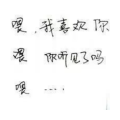 喂,我喜欢你
喂 你听见了吗
喂 ....